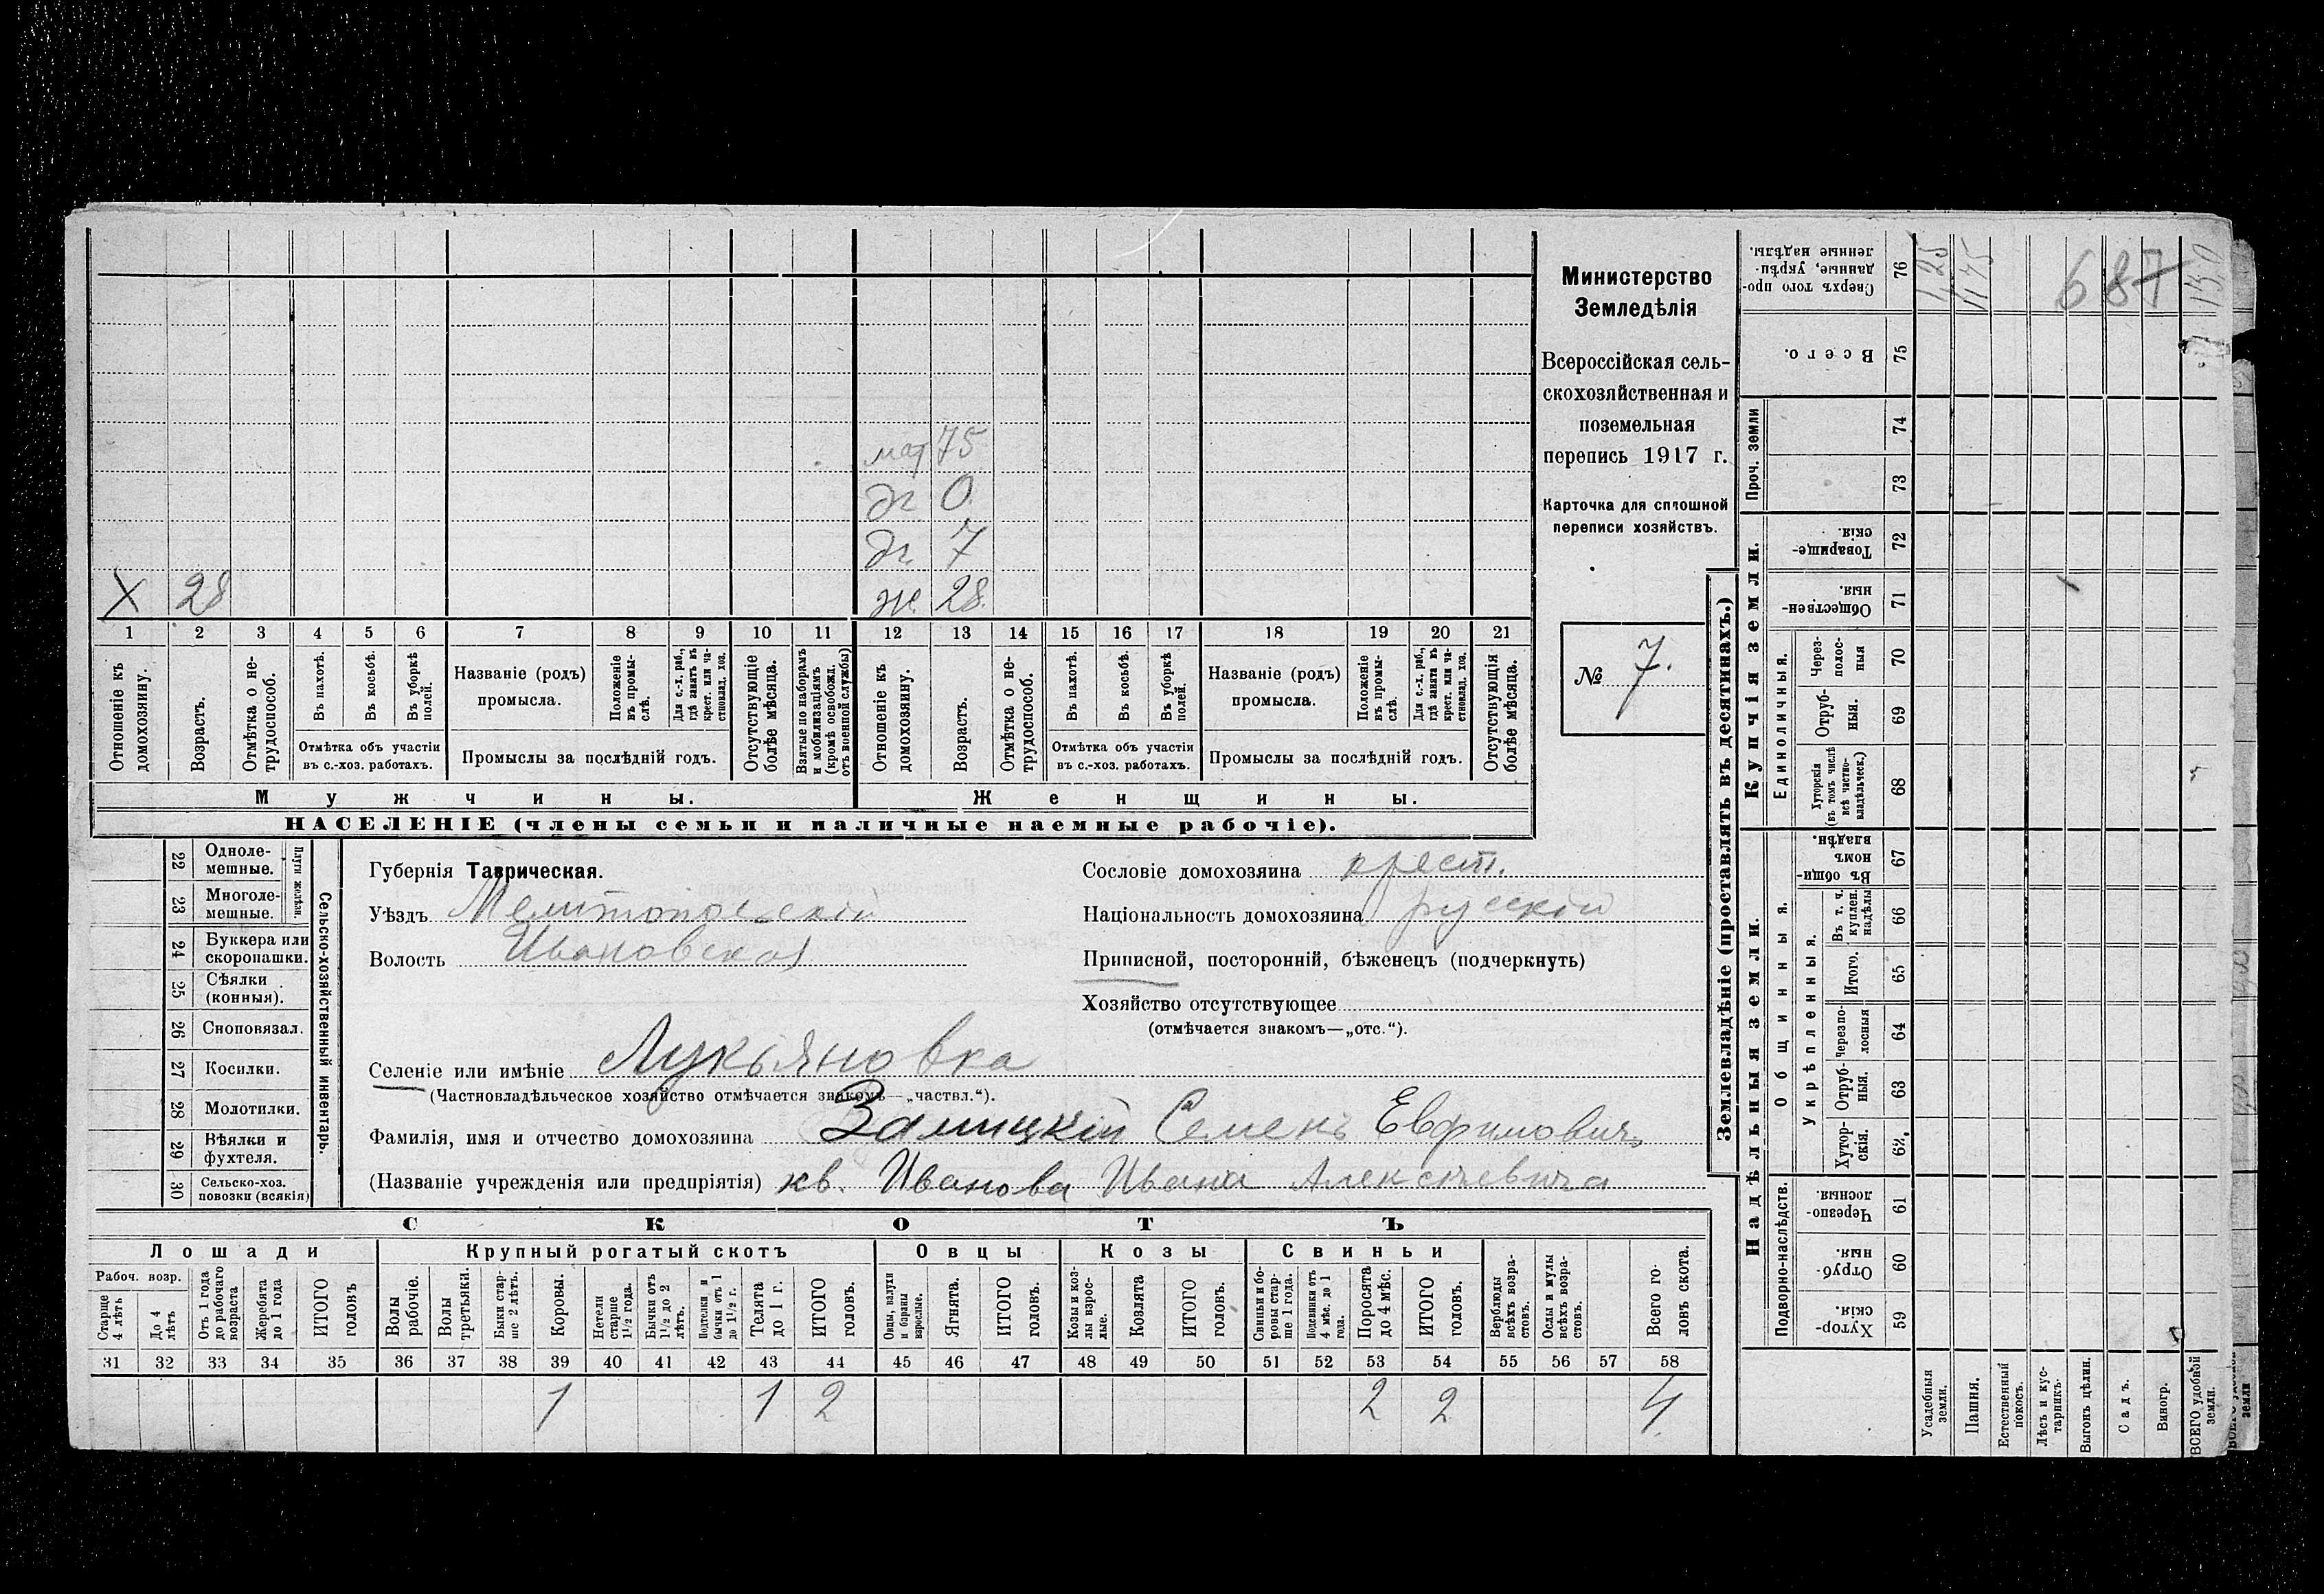 мат 75
дг 0
дг. 7
Х 28 ж. 28.
1 2 3 4 5 6 7 8 9 10 11 12 13 14 15 16 17 18 19 20 21
Отношеніе къ домохозяину.
Возрастъ.
Отмѣтка о не-
трудоспособ.
Въ пахотѣ.
Въ косьбѣ.
Въ уборкѣ
полей.
Отмѣтка объ участіи
въ с.-хоз. работахъ.
Названіе (родъ)
промысла.
Положеніе
въ промы-
слѣ.
Для с.-х. раб.,
гдѣ занятъ въ
крест. или ча-
стновлад. хоз.
Промыслы за послѣдній годъ.
Отсутствующіе
болѣе мѣсяца.
Взятые по наборамъ
и мобилизаціямъ
(кромѣ освобожд.
отъ военной службы)
Отношеніе къ
домохозяину.
Возрастъ.
Отмѣтка о не-
трудоспособ.
Въ пахотѣ.
Въ косьбѣ.
Въ уборкѣ
полей.
Отмѣтка объ участіи
въ с.-хоз. работахъ.
Названіе (родъ)
промысла.
Положеніе
въ промы-
слѣ.
Для с.-х. раб.,
гдѣ занята въ
крест. или ча-
стновлад. хоз.
Промыслы за послѣдній годъ.
Отсутствующія
болѣе мѣсяца.
Мужчины. Женщины.
НАСЕЛЕНІЕ (члены семьи и наличные наемные рабочіе).
Министерство
Земледѣлія
Всероссійская сель-
скохозяйственная и
поземельная
перепись 1917 г.
Карточка для сплошной
переписи хозяйствъ.
№ 7.
22 Одноле-
мешные.
23 Многоле-
мешные.
Плуги желѣзн.
24 Буккера или
скоропашки.
25 Сѣялки
(конныя).
26 Сноповязал.
27 Косилки.
28 Молотилки.
29 Вѣялки и
фухтеля.
30 Сельско-хоз.
повозки (всякія)
Сельско-хозяйственный инвентарь.
Губернія Таврическая.
Уѣздъ Мелитопольскій
Волость Ивановская
Сословіе домохозяина крест.
Національность домохозяина русскій
Приписной, посторонній, бѣженецъ (подчеркнуть)
Хозяйство отсутствующее
(отмѣчается знакомъ—„отс.“).
Селеніе или имѣніе Лукьяновка
(Частновладѣльческое хозяйство отмѣчается знакомъ—„частвл.“).
Фамилія, имя и отчество домохозяина Залицкій Семенъ Евфимовичъ
(Названіе учрежденія или предпріятія) кв. Иванова Ивана Алексѣевича
СКОТЪ
Лошади Крупный рогатый скотъ Овцы Козы Свиньи
Рабоч. возр.
Старше
4 лѣтъ
До 4
лѣтъ
Отъ 1 года
до рабочаго
возраста
Жеребята
до 1 года
ИТОГО
головъ
Волы
рабочіе.
Волы
третьяки.
Быки стар-
ше 2 лѣтъ.
Коровы.
Нетели
старше
1½ года.
Бычки отъ
1½ до 2
лѣтъ.
Подтелки и
бычки отъ 1
до 1½ г.
Телята
до 1 г.
ИТОГО
головъ.
Овцы, валухи
и бараны
взрослые.
Ягнята.
ИТОГО
головъ.
Козы и коз-
лы взрос-
лые.
Козлята
ИТОГО
головъ.
Свиньи и бо-
ровы стар-
ше 1 года.
Подсвинки отъ
4 мѣс. до 1
года.
Поросята
до 4 мѣс.
ИТОГО
головъ.
Верблюды
всѣхъ возра-
стовъ.
Ослы и мулы
всѣхъ возра-
стовъ.
Всего го-
ловъ скота.
31 32 33 34 35 36 37 38 39 40 41 42 43 44 45 46 47 48 49 50 51 52 53 54 55 56 57 58
1 1 2 2 2 4
Землевладѣніе (проставлять въ десятинахъ.)
Надѣльныя земли. Купчія земли. Проч. земли
Подворно-наслѣдств. Общинныя. Единоличныя.
Укрѣпленныя.
Хутор-
скія.
59
Отруб-
ныя.
60
Черезпо-
лосныя.
61
Хутор-
скія.
62.
Отруб-
ныя.
63
Черезпо-
лосныя
64
Итого.
65
Въ т. ч.
куплен.
надѣлы
66
Въ общи-
номъ
владѣн.
67
Хуторскія
(въ томъ числѣ
всѣ частно-
владѣльческ.)
68
Отруб-
ныя.
69
Через-
полос-
ныя
70
Обществен-
ныя.
71
Товарище-
скія
72
73
74
Всего.
75
Сверхъ того про-
данные, укрѣп-
ленные надѣлы.
76
Усадебныя
земли.
Пашня.
Естественный
покосъ.
Лѣсъ и кус-
тарникъ.
Выгонъ цѣлин.
Садъ.
Виногр.
ВСЕГО удобной
земли.
1,25
11 75
687
13,0